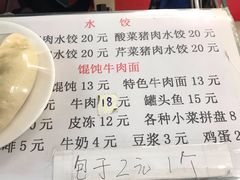 水 饺
肉水饺 20 元 酸菜猪肉水饺 20 元
水饺 20 元 芹菜猪肉水饺 20 元
馄饨牛肉面
馄饨 10 元 特色牛肉面 13 元
牛肉 18 元 罐头鱼 15 元
皮冻 12 元 各种小菜拼盘 8
啡 5 元 牛奶 4 元 豆浆 3 元 鸡蛋 2
包子2元1个